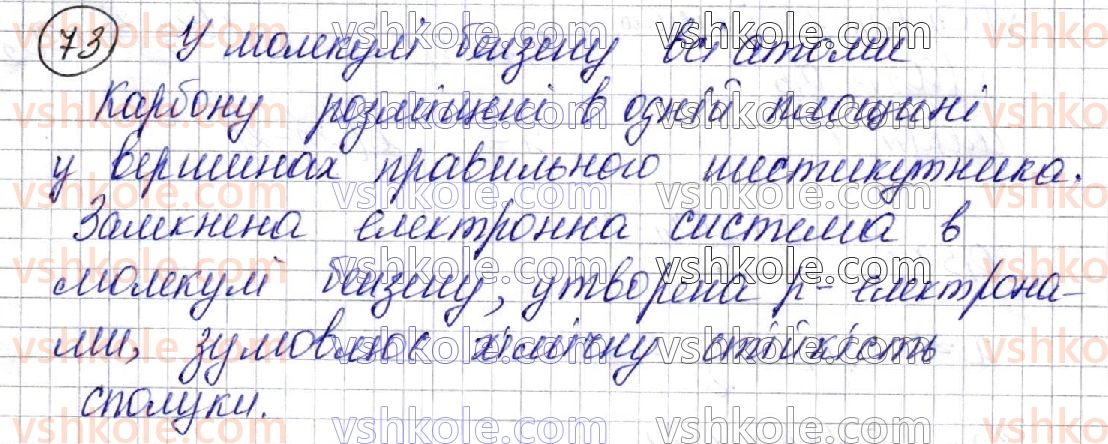 73 У молекулі бензену всі атоми
Карбону розміщені в одній площині
у вершинах правильного шестикутника.
Замкнена електронна система в
молекулі бензену, утворена p-електрона-
ми, зумовлює хімічну стійкість
сполуки.
vshkole.com